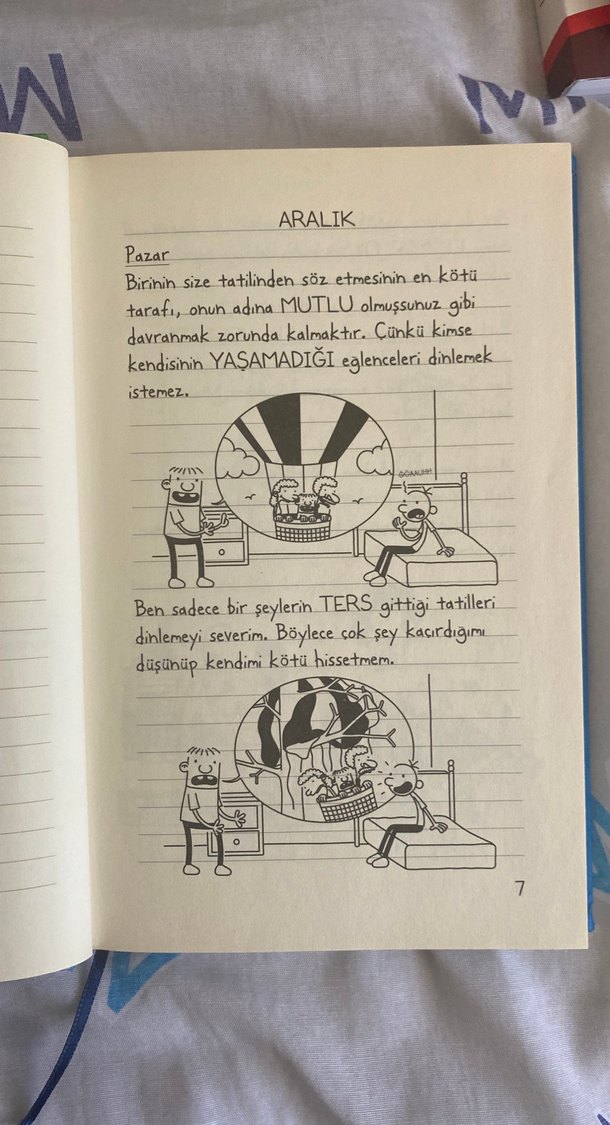 ARALIK
Pazar
Birinin size tatilinden söz etmesinin en kötü
tarafı, onun adına MUTLU olmuşsunuz gibi
davranmak zorunda kalmaktır. Çünkü kimse
kendisinin YAŞAMADIĞI eğlenceleri dinlemek
istemez.
Ben sadece bir şeylerin TERS gittiği tatilleri
dinlemeyi severim. Böylece çok şey kaçırdığımı
düşünüp kendimi kötü hissetmem.
7